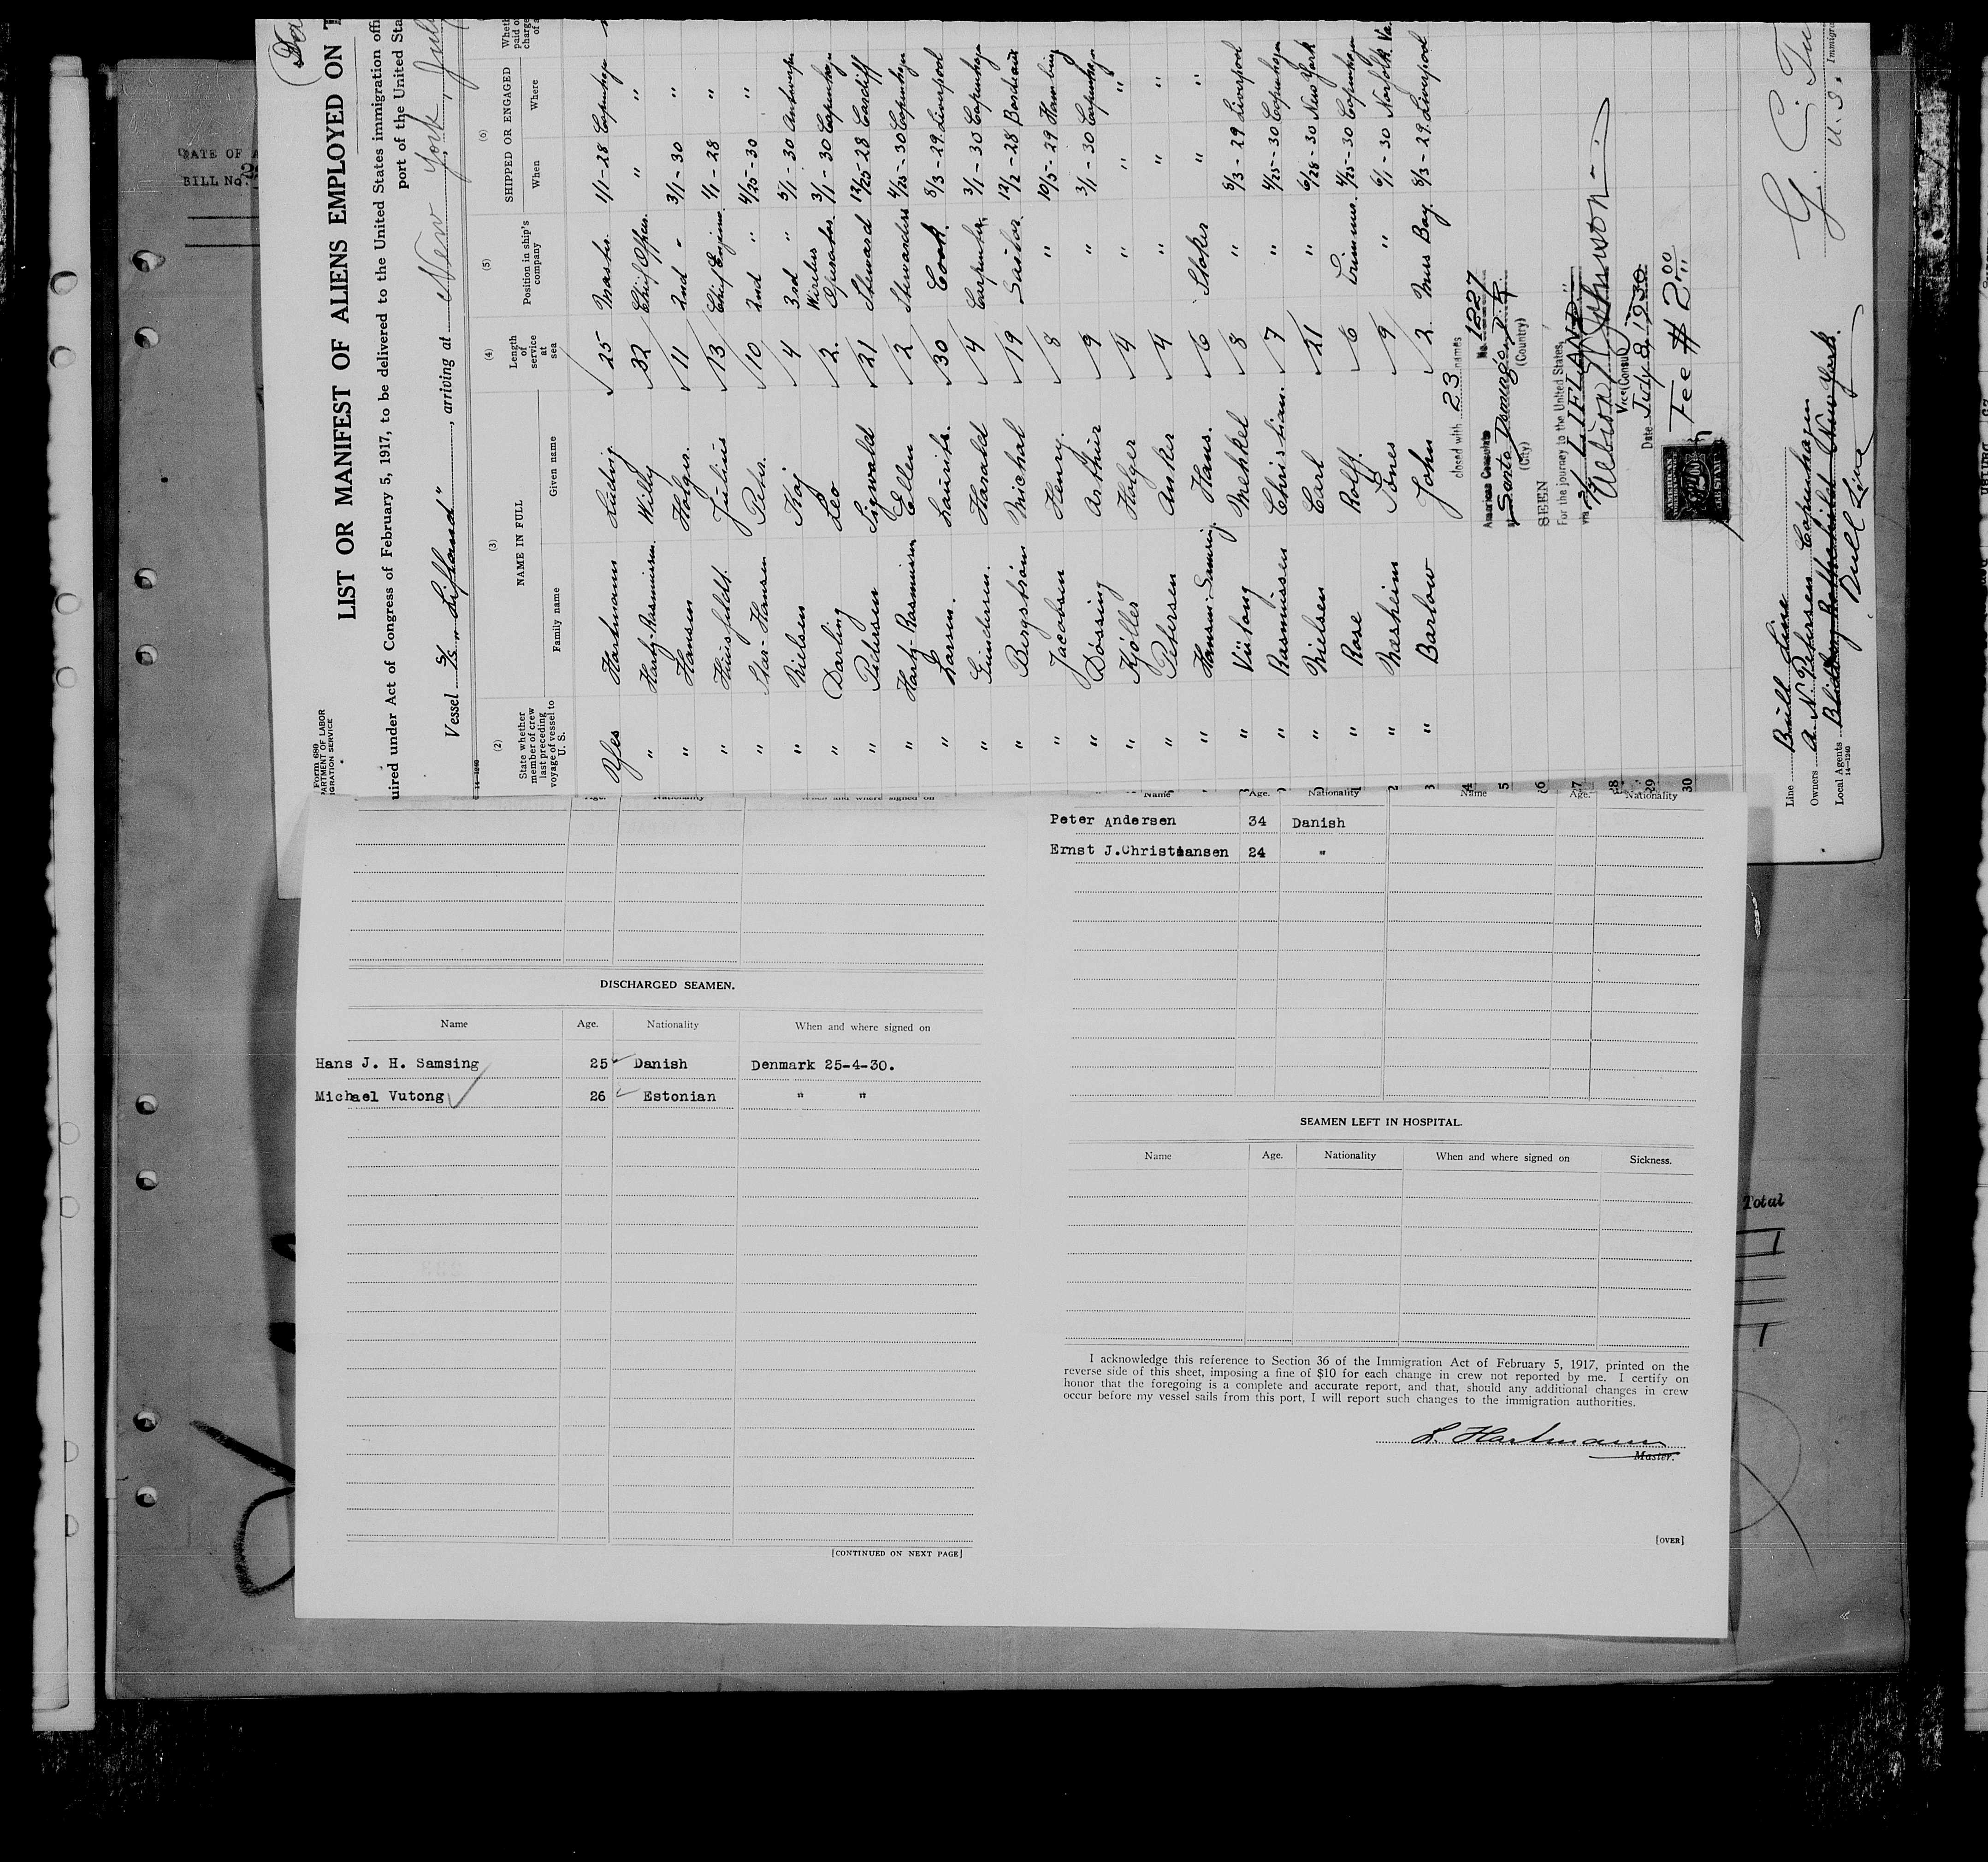 DATE OF A
BILL No.
Form 680
LIST OR MANIFEST OF ALIENS EMPLOYED ON T
uired under Act of Congress of February 5, 1917, to be delivered to the United States immigration offi
port of the United Sta
Vessel S/S "Lifland", arriving at New York, Jul
14-1240
(2) (3) (4) (5) (6)
State whether member of crew last preceding voyage of vessel to U. S.
NAME IN FULL
Family name Given name
Length of service at sea
Position in ship's company
SHIPPED OR ENGAGED
When Where
Yes Hartmann Ludvig 25 Master 1/1-28 Copenhagn
" Hartz-Rasmussen Willy 32 Chief Officer " "
" Hansen Holger 11 2nd " 3/1-30 "
" Julius 13 Chief Engineer 1/1-28 "
" Star-Hansen Peter 10 2nd " 4/25-30 "
" Nielsen Kaj 4 3rd " 5/1-30 Antwerpen
" Darling Leo 2 Wireless Operator 3/1-30 Copenhagn
" Petersen Sigwald 21 Steward 12/25-28 Cardiff
" Hartz-Rasmussen Ellen 2 Stewardess 4/25-30 Copenhagn
" Larsen Laurits 30 Cook 8/3-29 Liverpool
" Gundersen Harald 4 Carpenter 3/1-30 Copenhagn
" Bergström Michal 19 Sailor 12/2-28 Bordeaux
" Jacobsen Henry 8 " 10/5-29 Hamburg
" Døssing Arthur 9 " 3/1-30 Copenhagn
" Kjöller Holger 4 " " "
" Petersen Anker 4 " " "
" Hansen-Samsing Hans 6 Stoker " "
" Vütong Mehkel 8 " 8/3-29 Liverpool
" Rasmussen Christian 7 " 4/25-30 Copenhagn
" Nielsen Carl 21 " 6/28-30 New York
" Rose Rolf 6 Trimmer 4/25-30 Copenhagn
" Masheim Tönes 9 " 6/1-30 Norfolk Va.
" Barlow John 2 Mess Boy 8/3-29 Liverpool
closed with 23 names
American Consulate No. 1227
at Santo Domingo, D.R.
(City) (Country)
SEEN
For the journey to the United States,
via S/S LIFLAND
Johnson
Vice Consul
Date July 8, 1930
Fee # 2.00
Line Bull Line
Owners A. N. Petersen Copenhagen
Local Agents
Bull Line
14-1240
Age. Nationality When and where signed on
DISCHARGED SEAMEN.
Name Age. Nationality When and where signed on
Hans J. H. Samsing 25 Danish Denmark 25-4-30.
Michael Vutong 26 Estonian " "
[CONTINUED ON NEXT PAGE]
Name Age. Nationality Name Age. Nationality
Peter Andersen 34 Danish
Ernst J.Christiansen 24 "
SEAMEN LEFT IN HOSPITAL.
Name Age. Nationality When and where signed on Sickness.
I acknowledge this reference to Section 36 of the Immigration Act of February 5, 1917, printed on the
reverse side of this sheet, imposing a fine of $10 for each change in crew not reported by me. I certify on
honor that the foregoing is a complete and accurate report, and that, should any additional changes in crew
occur before my vessel sails from this port, I will report such changes to the immigration authorities.
L. Hartmann
Master.
[OVER]
Total